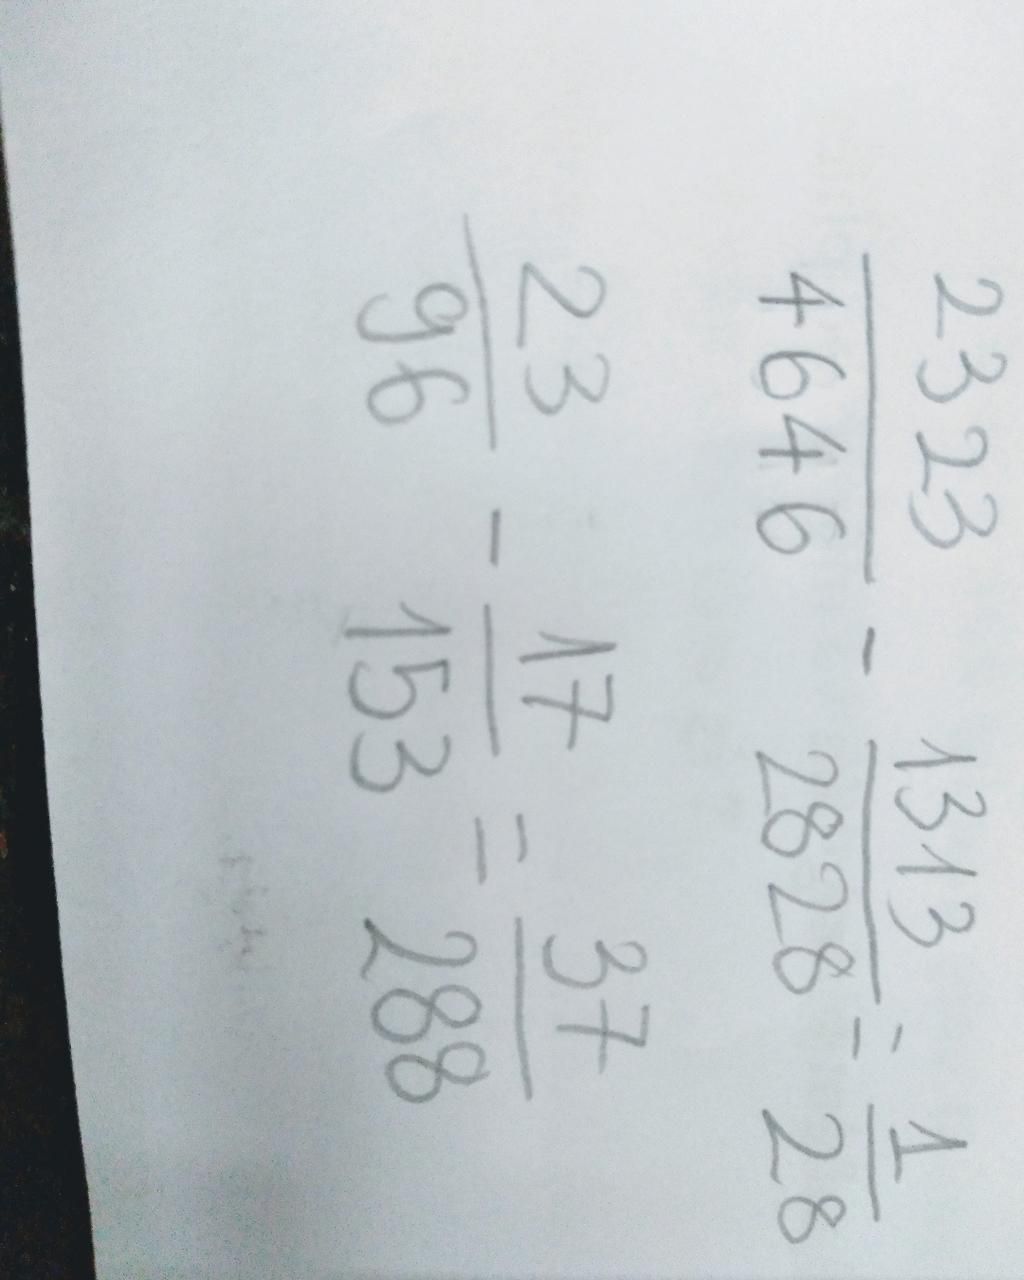 2323/4646 - 1313/2828 = 1/28
23/96 - 17/153 = 37/288